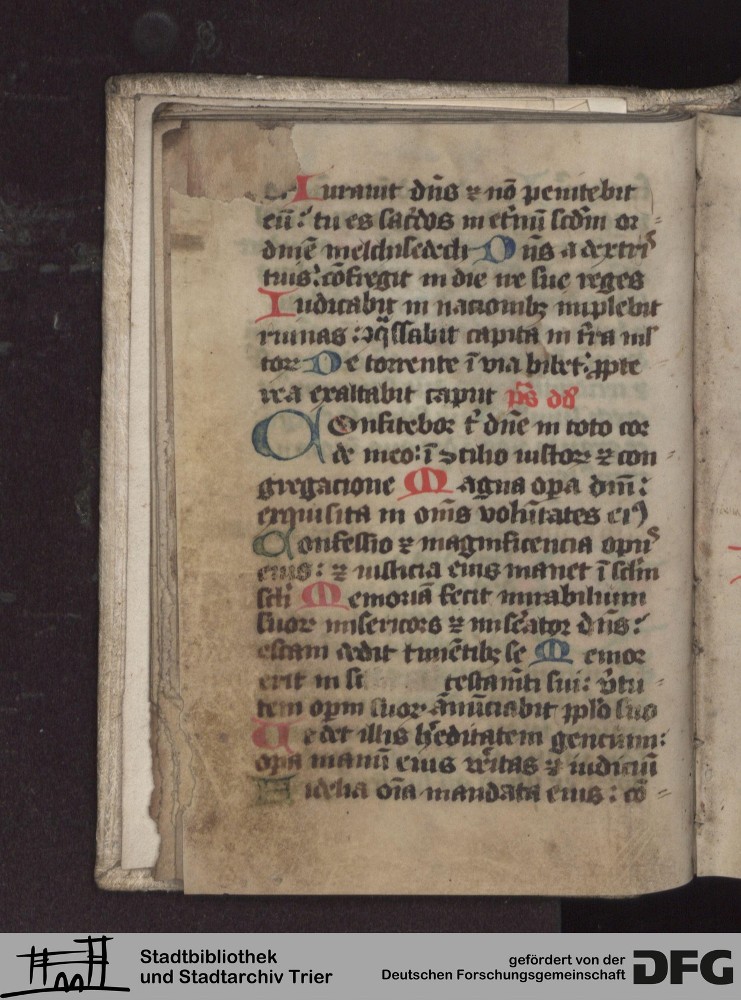 Iurauit dn̄s ⁊ nō penitebit
eū: tu es sac̄dos in et̄nū scd̄m or
dinē melchisedech Dn̄s a dextris
tuis: cōfregit in die ire sue reges
Iudicabit in nacionibꝫ implebit
ruinas: ꝯq̄ssabit capita in t̄ra ml̄
torꝝ De torrente ī via bibet: ꝓpte
rea exaltabit caput p̄s dd
Confitebor t̄ dn̄e in toto cor
de meo: ī ꝯcilio iustorꝝ ⁊ con
gregacione Magna oꝑa dn̄i:
exquisita in om̄s volūtates eiꝰ
Confessio ⁊ magnificencia opus
eius: ⁊ iusticia eius manet ī sclm̄
scli Memoriā fecit mirabilium
suorꝝ misericors ⁊ miserator dn̄s:
escam dedit timētibꝫ se Memor
erit in testam̄ti sui: v̄tu
tem oꝑm suorꝝ ānūciabit ppl̄o suo
Vt det illis hereditatem gencium:
opa manuū eius v̄itas ⁊ iudiciū
Fidelia oīa mandata eius: cō
Stadtbibliothek
und Stadtarchiv Trier
gefördert von der
Deutschen Forschungsgemeinschaft
DFG